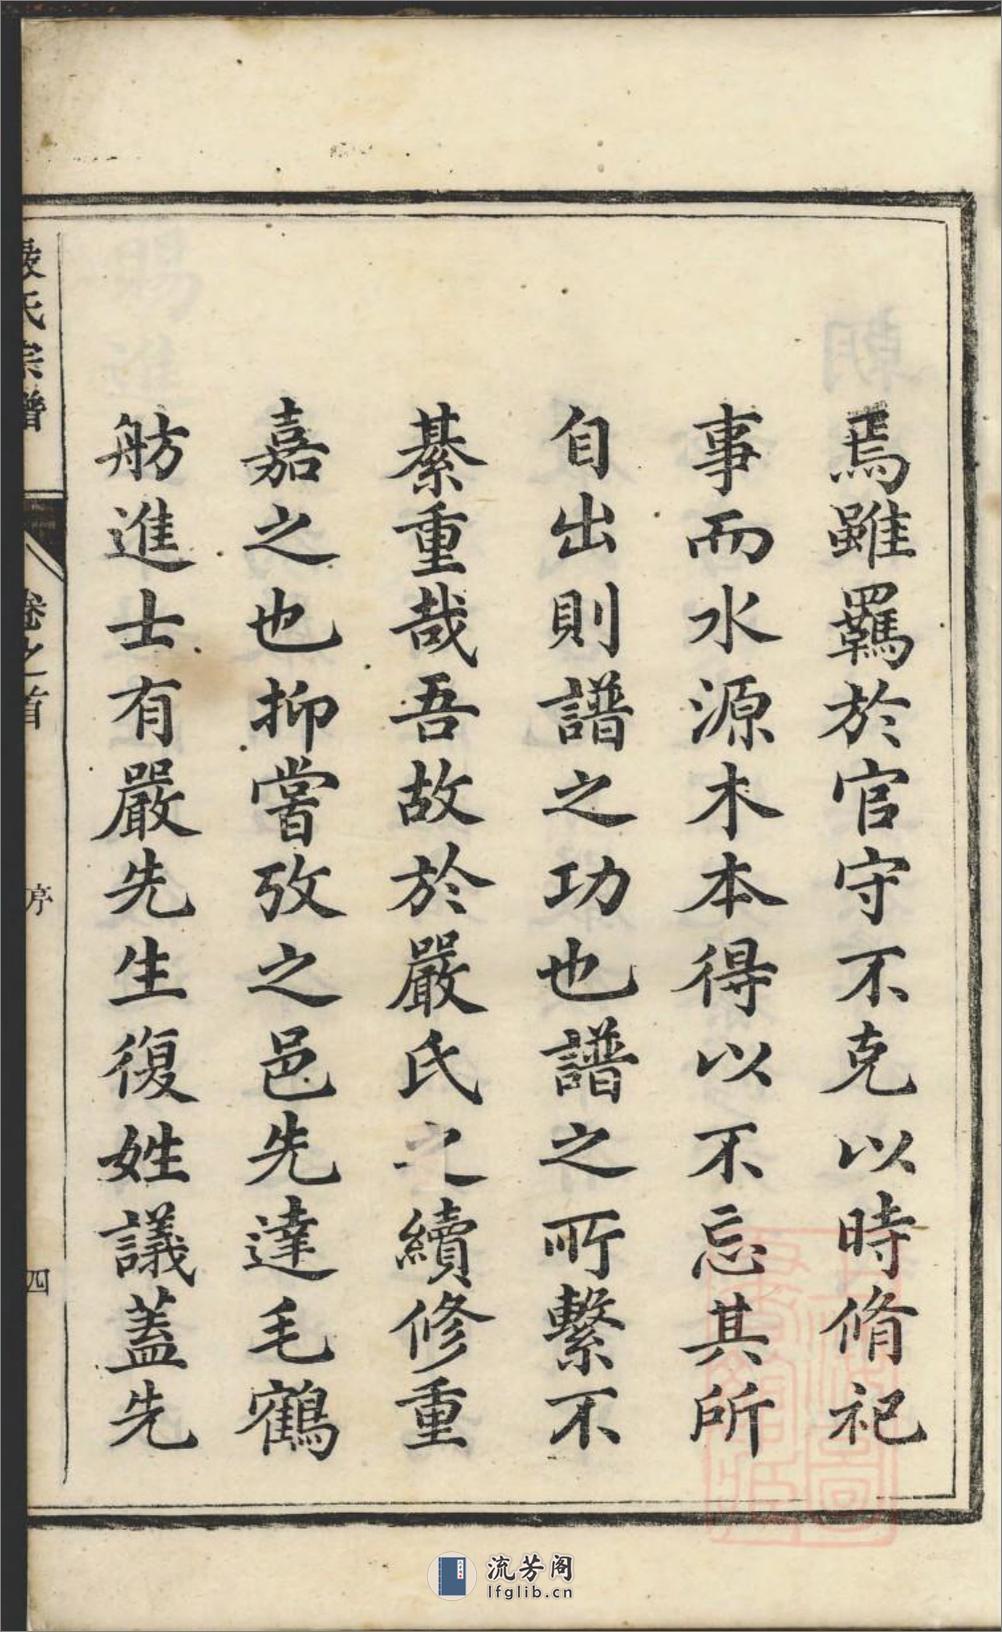 焉雖羈於官守不克以時脩祀
事而水源木本得以不忘其所
自出則譜之功也譜之所繫不
綦重哉吾故於嚴氏之續修重
嘉之也抑嘗攷之邑先達毛鶴
舫進士有嚴先生復姓議蓋先
氏宗譜
卷之首
序
四
流芳阁
lfglib.cn